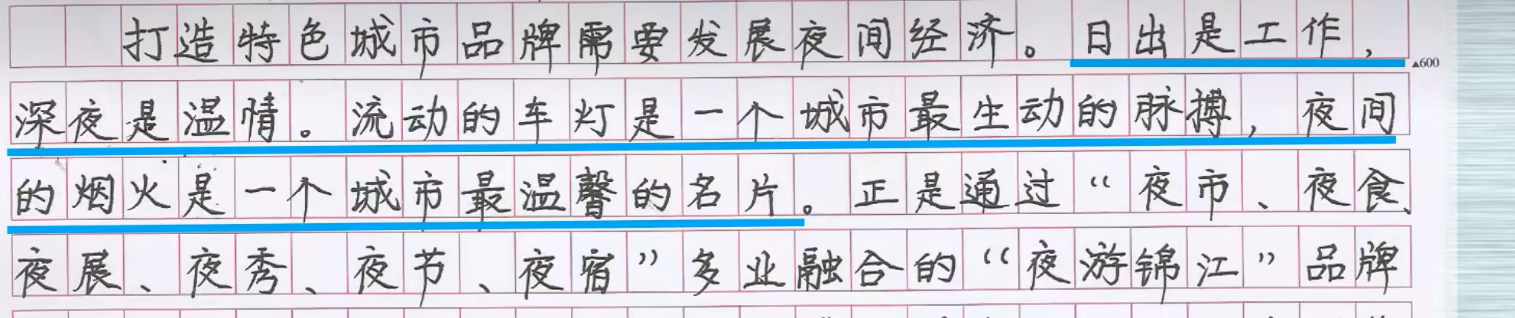 打造特色城市品牌需要发展夜间经济。日出是工作，
▲600
深夜是温情。流动的车灯是一个城市最生动的脉搏，夜间
的烟火是一个城市最温馨的名片。正是通过“夜市、夜食、
夜展、夜秀、夜节、夜宿”多业融合的“夜游锦江”品牌